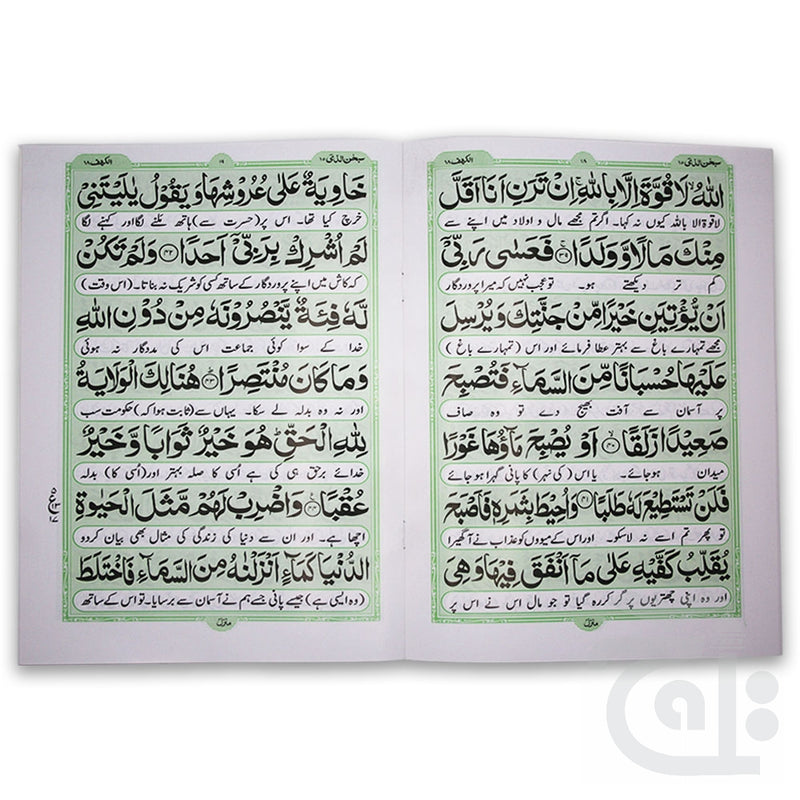 سبحٰن الذی ١٥
١٨
الکھف ١٨
اللّٰهُ لَا قُوَّةَ اِلَّا بِاللّٰهِ اِنْ تَرَنِ اَنَا اَقَلَّ
لاقوۃ الا باللہ کیوں نہ کہا۔ اگر تم مجھے مال و اولاد میں اپنے سے
مِنْكَ مَالًا وَّوَلَدًا ﴿٣٩﴾ فَعَسٰى رَبِّىْٓ
کم تر دیکھتے ہو۔ تو عجب نہیں کہ میرا پروردگار
اَنْ يُّؤْتِيَنِ خَيْرًا مِّنْ جَنَّتِكَ وَيُرْسِلَ
مجھے تمہارے باغ سے بہتر عطا فرمائے اور اس (تمہارے باغ)
عَلَيْهَا حُسْبَانًا مِّنَ السَّمَآءِ فَتُصْبِحَ
پر آسمان سے آفت بھیج دے تو وہ صاف
صَعِيْدًا زَلَقًا ﴿٤٠﴾ اَوْ يُصْبِحَ مَآؤُهَا غَوْرًا
میدان ہوجائے۔ یا اس (کی نہر) کا پانی گہرا ہو جائے
فَلَنْ تَسْتَطِيْعَ لَهٗ طَلَبًا ﴿٤١﴾ وَاُحِيْطَ بِثَمَرِهٖ فَاَصْبَحَ
تو پھر تم اسے نہ لاسکو۔ اور اس کے میووں کو عذاب نے آگھیرا
يُقَلِّبُ كَفَّيْهِ عَلٰى مَآ اَنْفَقَ فِيْهَا وَهِىَ
اور وہ اپنی چھتریوں پر گر کر رہ گیا تو جو مال اس نے اس پر
منزل
سبحٰن الذی ١٥
١٩
الکھف ١٨
خَاوِيَةٌ عَلٰى عُرُوْشِهَا وَيَقُوْلُ يٰلَيْتَنِىْ
خرچ کیا تھا۔ اس پر (حسرت سے) ہاتھ ملنے لگا اور کہنے لگا
لَمْ اُشْرِكْ بِرَبِّىْٓ اَحَدًا ﴿٤٢﴾ وَلَمْ تَكُنْ
کہ کاش میں اپنے پروردگار کے ساتھ کسی کو شریک نہ بناتا۔ (اس وقت)
لَّهٗ فِئَةٌ يَّنْصُرُوْنَهٗ مِنْ دُوْنِ اللّٰهِ
خدا کے سوا کوئی جماعت اس کی مددگار نہ ہوئی
وَمَا كَانَ مُنْتَصِرًا ﴿٤٣﴾ هُنَالِكَ الْوَلَايَةُ
اور نہ وہ بدلہ لے سکا۔ یہاں سے (ثابت ہوا کہ) حکومت سب
لِلّٰهِ الْحَقِّ هُوَ خَيْرٌ ثَوَابًا وَّخَيْرٌ
خدائے برحق ہی کی ہے اُسی کا صلہ بہتر اور (اُسی کا) بدلہ
عُقْبًا ﴿٤٤﴾ وَاضْرِبْ لَهُمْ مَّثَلَ الْحَيٰوةِ
اچھا ہے۔ اور ان سے دنیا کی زندگی کی مثال بھی بیان کردو
الدُّنْيَا كَمَآءٍ اَنْزَلْنٰهُ مِنَ السَّمَآءِ فَاخْتَلَطَ
(وہ ایسی ہے) جیسے پانی جسے ہم نے آسمان سے برسایا۔ تو اس کے ساتھ
منزل